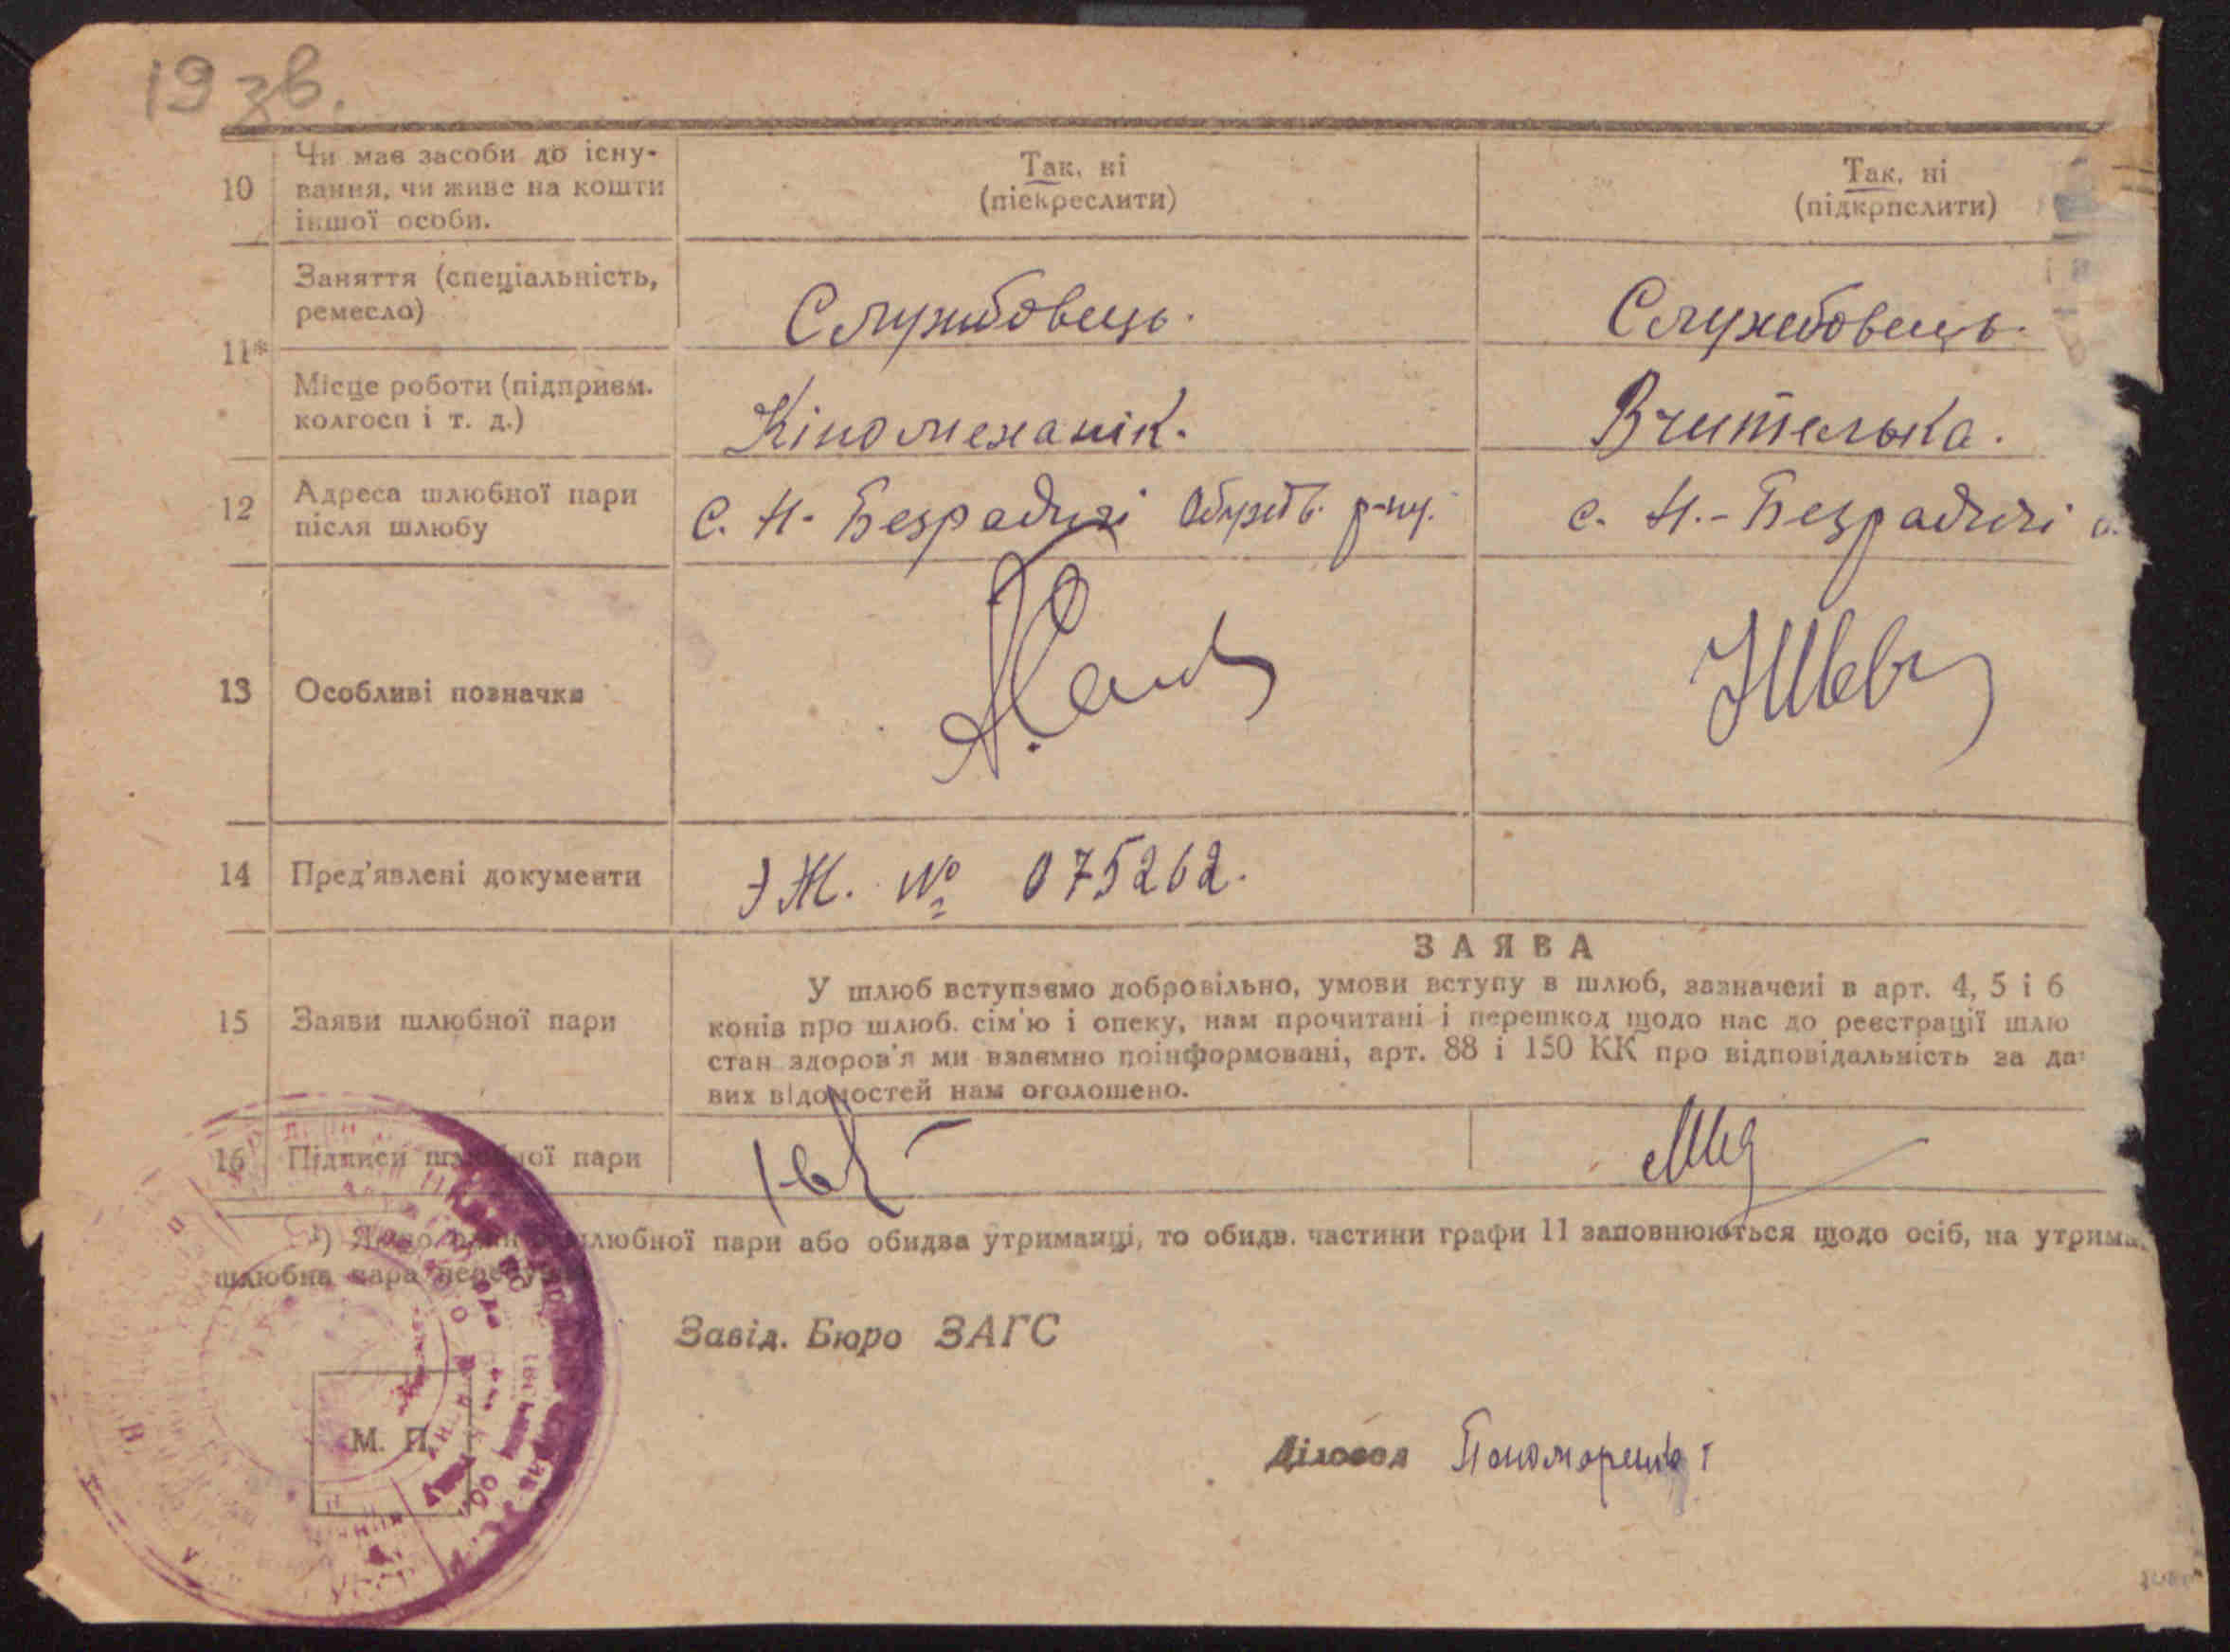 19 зв.
10 Чи має засоби до існу- Так, ні Так, ні
вання, чи живе на кошти (піекреслити) (підкрпслити)
іншої особи.
11* Заняття (спеціальність, Службовець. Службовець.
ремесло)
Місце роботи (підприєм. Кіномеханік. Вчителька.
колгосп і т. д.)
12 Адреса шлюбної пари с. Н-Безрадичі Обухів. р-ну. с. Н.-Безрадичі
після шлюбу
13 Особливі позначки
14 Пред'явлені документи ЭЖ. № 075262.
ЗАЯВА
15 Заяви шлюбної пари У шлюб вступаємо добровільно, умови вступу в шлюб, зазначені в арт. 4, 5 і 6
конів про шлюб. сім'ю і опеку, нам прочитані і перешкод щодо нас до реєстрації шлю
стан здоров'я ми взаємно поінформовані, арт. 88 і 150 КК про відповідальність за да
вих відомостей нам оголошено.
16 Підписи шлюбної пари
¹) Якщо один шлюбної пари або обидва утриманці, то обидв. частини графи 11 заповнюються щодо осіб, на утрима
шлюбна пара
Завід. Бюро ЗАГС
М. П.
Діловод Пономаренко